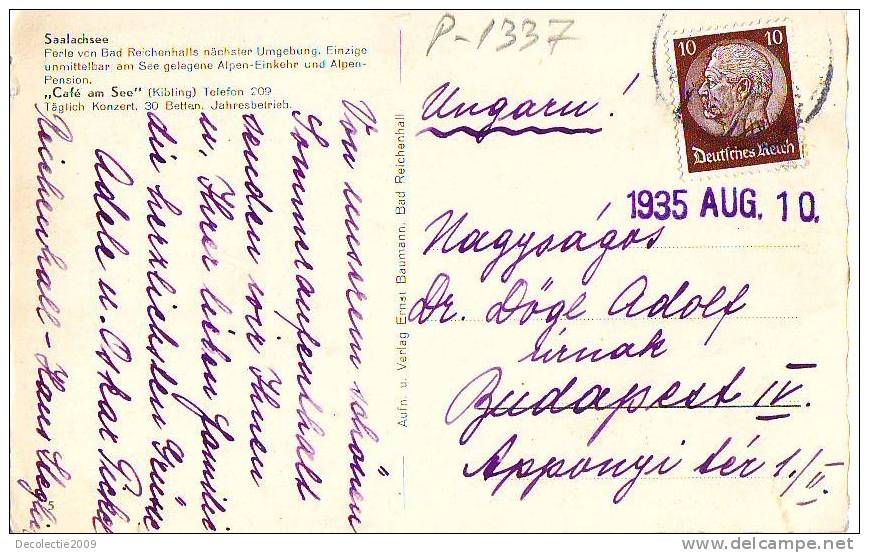 Saalachsee
Perle von Bad Reichenhalls nächster Umgebung. Einzige
unmittelbar am See gelegene Alpen-Einkehr und Alpen-
Pension.
„Café am See" (Kibling) Telefon 209
Täglich Konzert. 30 Betten. Jahresbetrieb.
Von unserem schönen
Sommeraufenthalt
senden wir Ihnen
u. Ihrer lieben Familie
die herzlichsten Grüsse
Adele u. Oskar
Reichenhall - Haus
Aufn. u. Verlag Ernst Baumann, Bad Reichenhall
P-1337
10 10
Deutsches Reich
Ungarn!
1935 AUG. 10.
Nagyságos
Dr. Dögl Adolf
úrnak
Budapest IV.
Apponyi tér 1./II.
5
Decolectie2009
delcampe.net